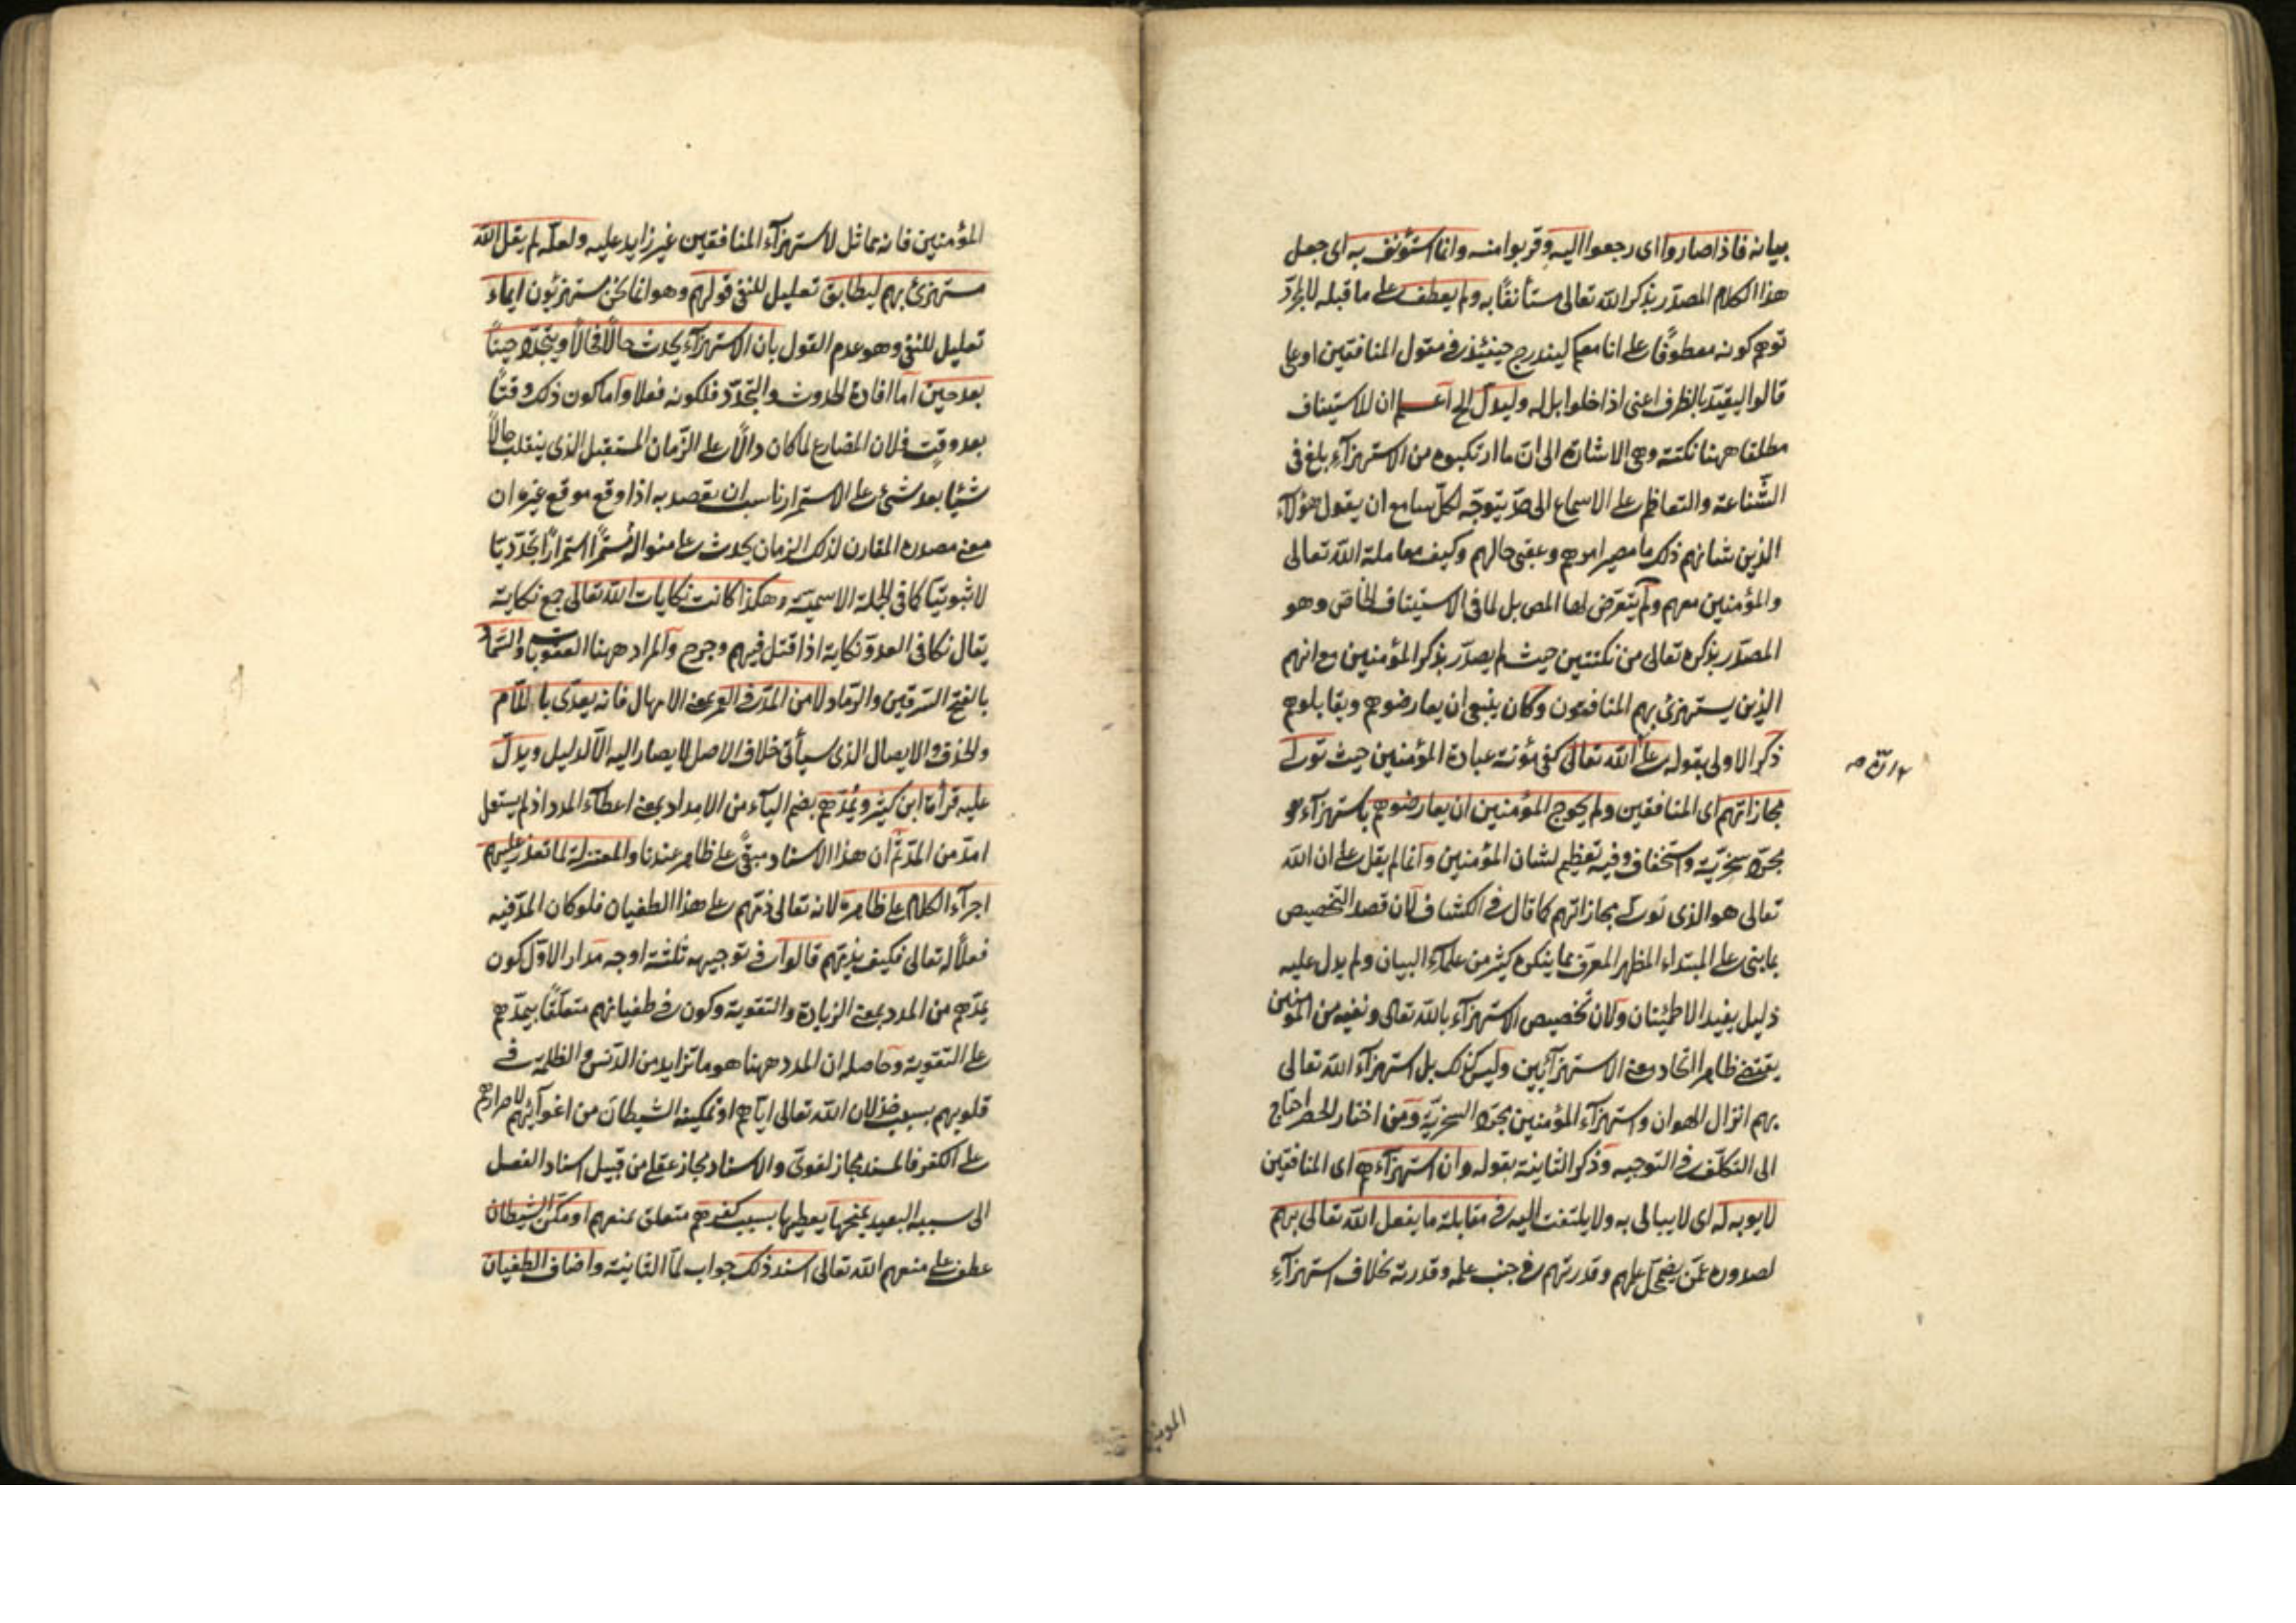 بيانه فاذا صاروا اى رجعوا اليه وقربوا منه وانما استؤنف به اى جعل
هذا الكلام المصدّر بذكر الله تعالى مستأنفًا به ولم يعطف على ما قبله لايراد
توهم كونه معطوفًا على انا معكم ليندرج حينئذ فى مقول المنافقين او على
قالوا ليقيّد بالظرف اعنى اذا خلوا بل له وليدلّ الخ اعلم ان للاستيناف
مطلقا ههنا نكتة وهى الاشارة الى انّ ما ارتكبوه من الاستهزآء بلغ فى
الشّناعة والتعاظم على الاسماع الى حدّ يتوجّه لكلّ سامع ان يقول هؤلاء
الذين شانهم ذلك ما مصير امرهم وعقبى حالهم وكيف معاملة الله تعالى
والمؤمنين معهم ولم يتعرّض لها المص بل لما فى الاستيناف الخاصّ وهو
المصدّر بذكره تعالى من نكتتين حيث لم يصدّر بذكر المؤمنين مع انهم
الذين يستهزئ بهم المنافقون وكان ينبغى ان يعارضوهم ويقابلوهم
ذكر الاولى بقوله على انّ الله تعالى كفى مؤنة عبادة المؤمنين حيث تولّى
مجازاتهم اى المنافقين ولم يحوج المؤمنين ان يعارضوهم باستهزآء هو
مجرّد سخريّة واستخفاف وفيه تعظيم لشان المؤمنين وانما لم يقل على ان الله
تعالى هو الذى تولّى مجازاتهم كما قال فى الكشاف لان قصد التخصيص
بما بنى على المبتداء المظهر المعرّف مما ينكره كثير من علمآء البيان ولم يدل عليه
دليل يفيد الاطمئنان ولان تخصيص الاستهزآء بالله تعالى ونفيه من المؤمنين
يقتضى ظاهرا اتحاد معنى الاستهزآئين وليس كذلك بل استهزآء الله تعالى
بهم انزال الهوان واستهزآء المؤمنين مجرّد السخريّة ومن اختار الحصر احتاج
الى التكلّف فى التوجيه وذكر الثانية بقوله وان استهزآءهم اى المنافقين
لا يوبه له اى لا يبالى به ولا يلتفت اليه فى مقابلة ما يفعل الله تعالى بهم
لصدوره عمّن يضمحلّ علمهم وقدرتهم فى جنب علمه وقدرته بخلاف استهزآء
المؤمنين
المؤمنين فانه مماثل لاستهزآء المنافقين غير زايد عليه ولعلّه لم يقل الله
مستهزئ بهم ليطابق تعليل للنفى قولهم وهو انما نحن مستهزئون ايماء
تعليل للنفى وهو عدم القول بان الاستهزآء يحدث حالًا فحالًا ويتجدّد حينًا
بعد حين اما افادة الحدوث والتجدّد فلكونه فعلا واما كون ذلك وقتًا
بعد وقت فلان المضارع لما كان دالّا على الزّمان المستقبل الذى ينقلب حالًا
شيئا بعد شئ على الاستمرار ناسب ان يقصد به اذا وقع موقع غيره ان
معنى مصدره المقارن لذلك الزمان يحدث على منواله مستمرًّا استمرارًا تجدّديّا
لا ثبوتيّا كما فى الجملة الاسميّة وهكذا كانت نكايات الله تعالى جمع نكاية
يقال نكا فى العدوّ نكاية اذا قتل فيهم وجرح والمراد ههنا العقوبات والسّماد
بالفتح السّرقين والرّماد لا من المدّ فى العمر بمعنى الامهال فانه يعدّى باللّام
والحذف والايصال الذى سيأتى خلاف الاصل لا يصار اليه الّا لدليل ويدلّ
عليه قرأة ابن كثير ويُمدّهم بضم اليآء من الامداد بمعنى اعطآء المدد اذ لم يستعمل
امدّ من المدّ ثمّ ان هذا الاسناد مبقىً على ظاهره عندنا والمعتزلة لما تعذر عليهم
اجرآء الكلام على ظاهره لانه تعالى ذمّهم على هذا الطغيان فلو كان المدّ فيه
فعلًا له تعالى فكيف يذمّهم قالوا فى توجيهه ثلثة اوجه مدار الاوّل كون
يمدّهم من المدد بمعنى الزيادة والتقوية وكون فى طغيانهم متعلّقًا بيمدّهم
على التقوية وحاصله ان المدد ههنا هو ما تزايد من الدّنس والظلمة فى
قلوبهم بسبب خذلان الله تعالى ايّاهم او تمكينه الشيطان من اغوآئهم لاصرارهم
على الكفر فالمسند مجاز لغوىّ والاسناد مجاز عقلى من قبيل اسناد الفعل
الى سببه البعيد يمنحها يعطيها بسبب كفرهم متعلق بمنعهم او مكّن الشيطان
عطف على منعهم الله تعالى اسند ذلك جواب لمّا الثانية واضاف الطغيان